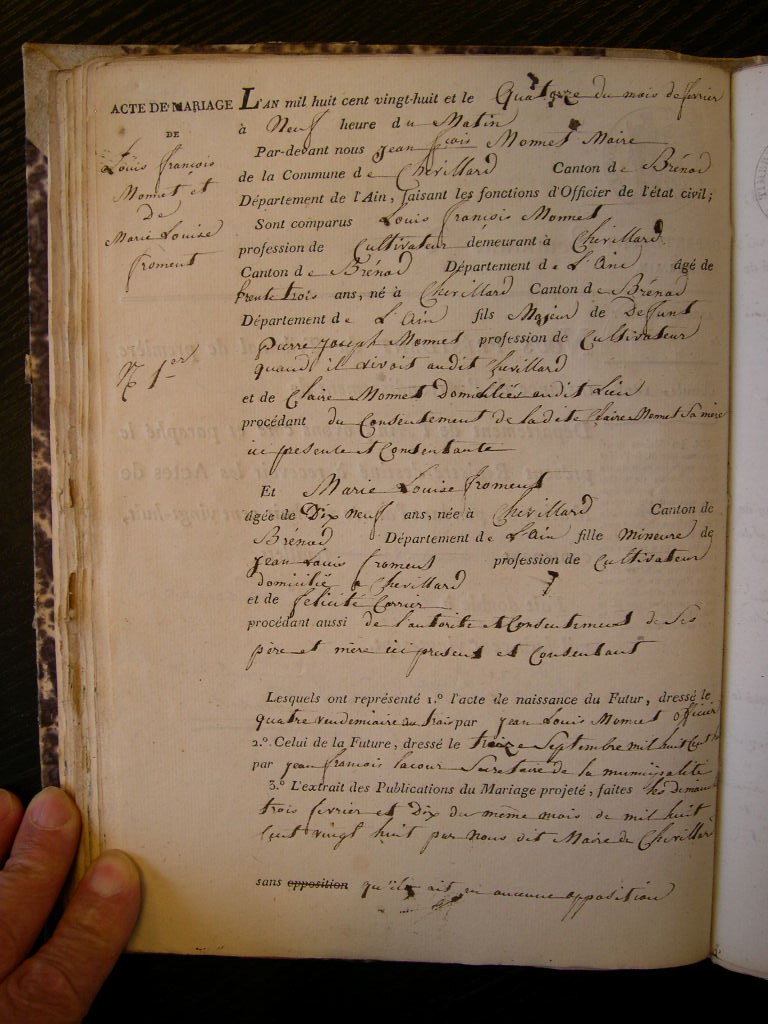 ACTE DE MARIAGE
DE
Louis françois
Monnet et
de
Marie Louise
froment
N.º 1.er
L'AN mil huit cent vingt-huit et le Quatorze du mois de fevrier
à Neuf heure du Matin
Par-devant nous jean fçois Monnet Maire
de la Commune de Chevillard Canton de Brénod
Département de l'Ain, faisant les fonctions d'Officier de l'état civil;
Sont comparus Louis françois Monnet
profession de Cultivateur demeurant à Chevillard
Canton de Brénod Département de L'Ain âgé de
trente trois ans, né à Chevillard Canton de Brénod
Département de L'Ain fils Majeur de Deffunt
Pierre joseph Monnet profession de Cultivateur
quand il vivoit audit Chevillard
et de Claire Monnet Domiciliée audit Lieu
procédant du Consentement de ladite Claire Monnet Sa mère
ici presente et Consentante
Et Marie Louise froment
âgée de Dix Neuf ans, née à Chevillard Canton de
Brénod Département de L'Ain fille Mineure de
jean Louis froment profession de Cultivateur
domicilié a Chevillard
et de felicité Carrier
procédant aussi de l'autorité et Consentement de Ses
père et mère ici present et Consentant
Lesquels ont représenté 1.º l'acte de naissance du Futur, dressé le
quatre vendemiaire an trois par jean Louis Monnet officier
2.º Celui de la Future, dressé le treize Septembre mil huit Cent
par jean françois lacour Secretaire de la municipalité
3.º L'extrait des Publications du Mariage projeté, faites les dimanc
trois fevrier et Dix du même mois de mil huit
Cent vingt huit par Nous dit Maire de Chevillard
sans opposition qu'il y ait eu aucune opposition